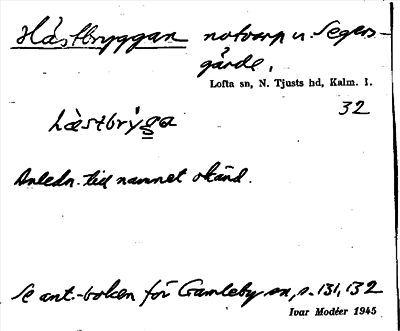 Hästbryggan notvarp u. Segers-
gårde.
Lofta sn, N. Tjusts hd, Kalm. l.
32
hästbryga
Anledn. till namnet okänd.
Se ant.-boken för Gamleby sn, s. 131, 132
Ivar Modéer 1945